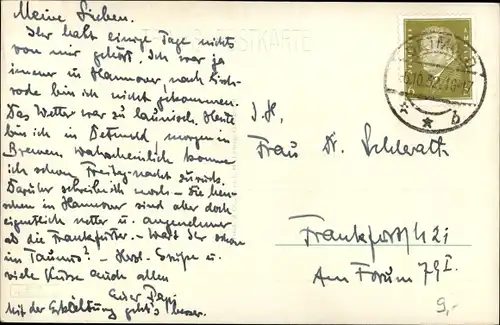 Meine Lieben.
Ihr habt einige Tage nichts
von mir gehört. Ich war ja
immer in Hannover, nach
rode bin ich nicht gekommen.
Das Wetter war zu launisch. Heute
bin ich in Detmold, morgen in
Bremen. Wahrscheinlich komme
ich schon Freitag-nacht zurück.
Darüber schreib ich noch - Die Men-
schen in Hannover sind aber doch
eigentlich netter u. angenehmer
als die Frankfurter. - Wart Ihr schon
im Taunus? - Herzl. Grüße u.
viele Küsse euch allen
Euer Papi
Mit der Erkältung geht's besser.
POSTKARTE
DETMOLD
I. H.
Frau Dr. Schlerath
Frankfurt
Am Forum 79 I.
9,-